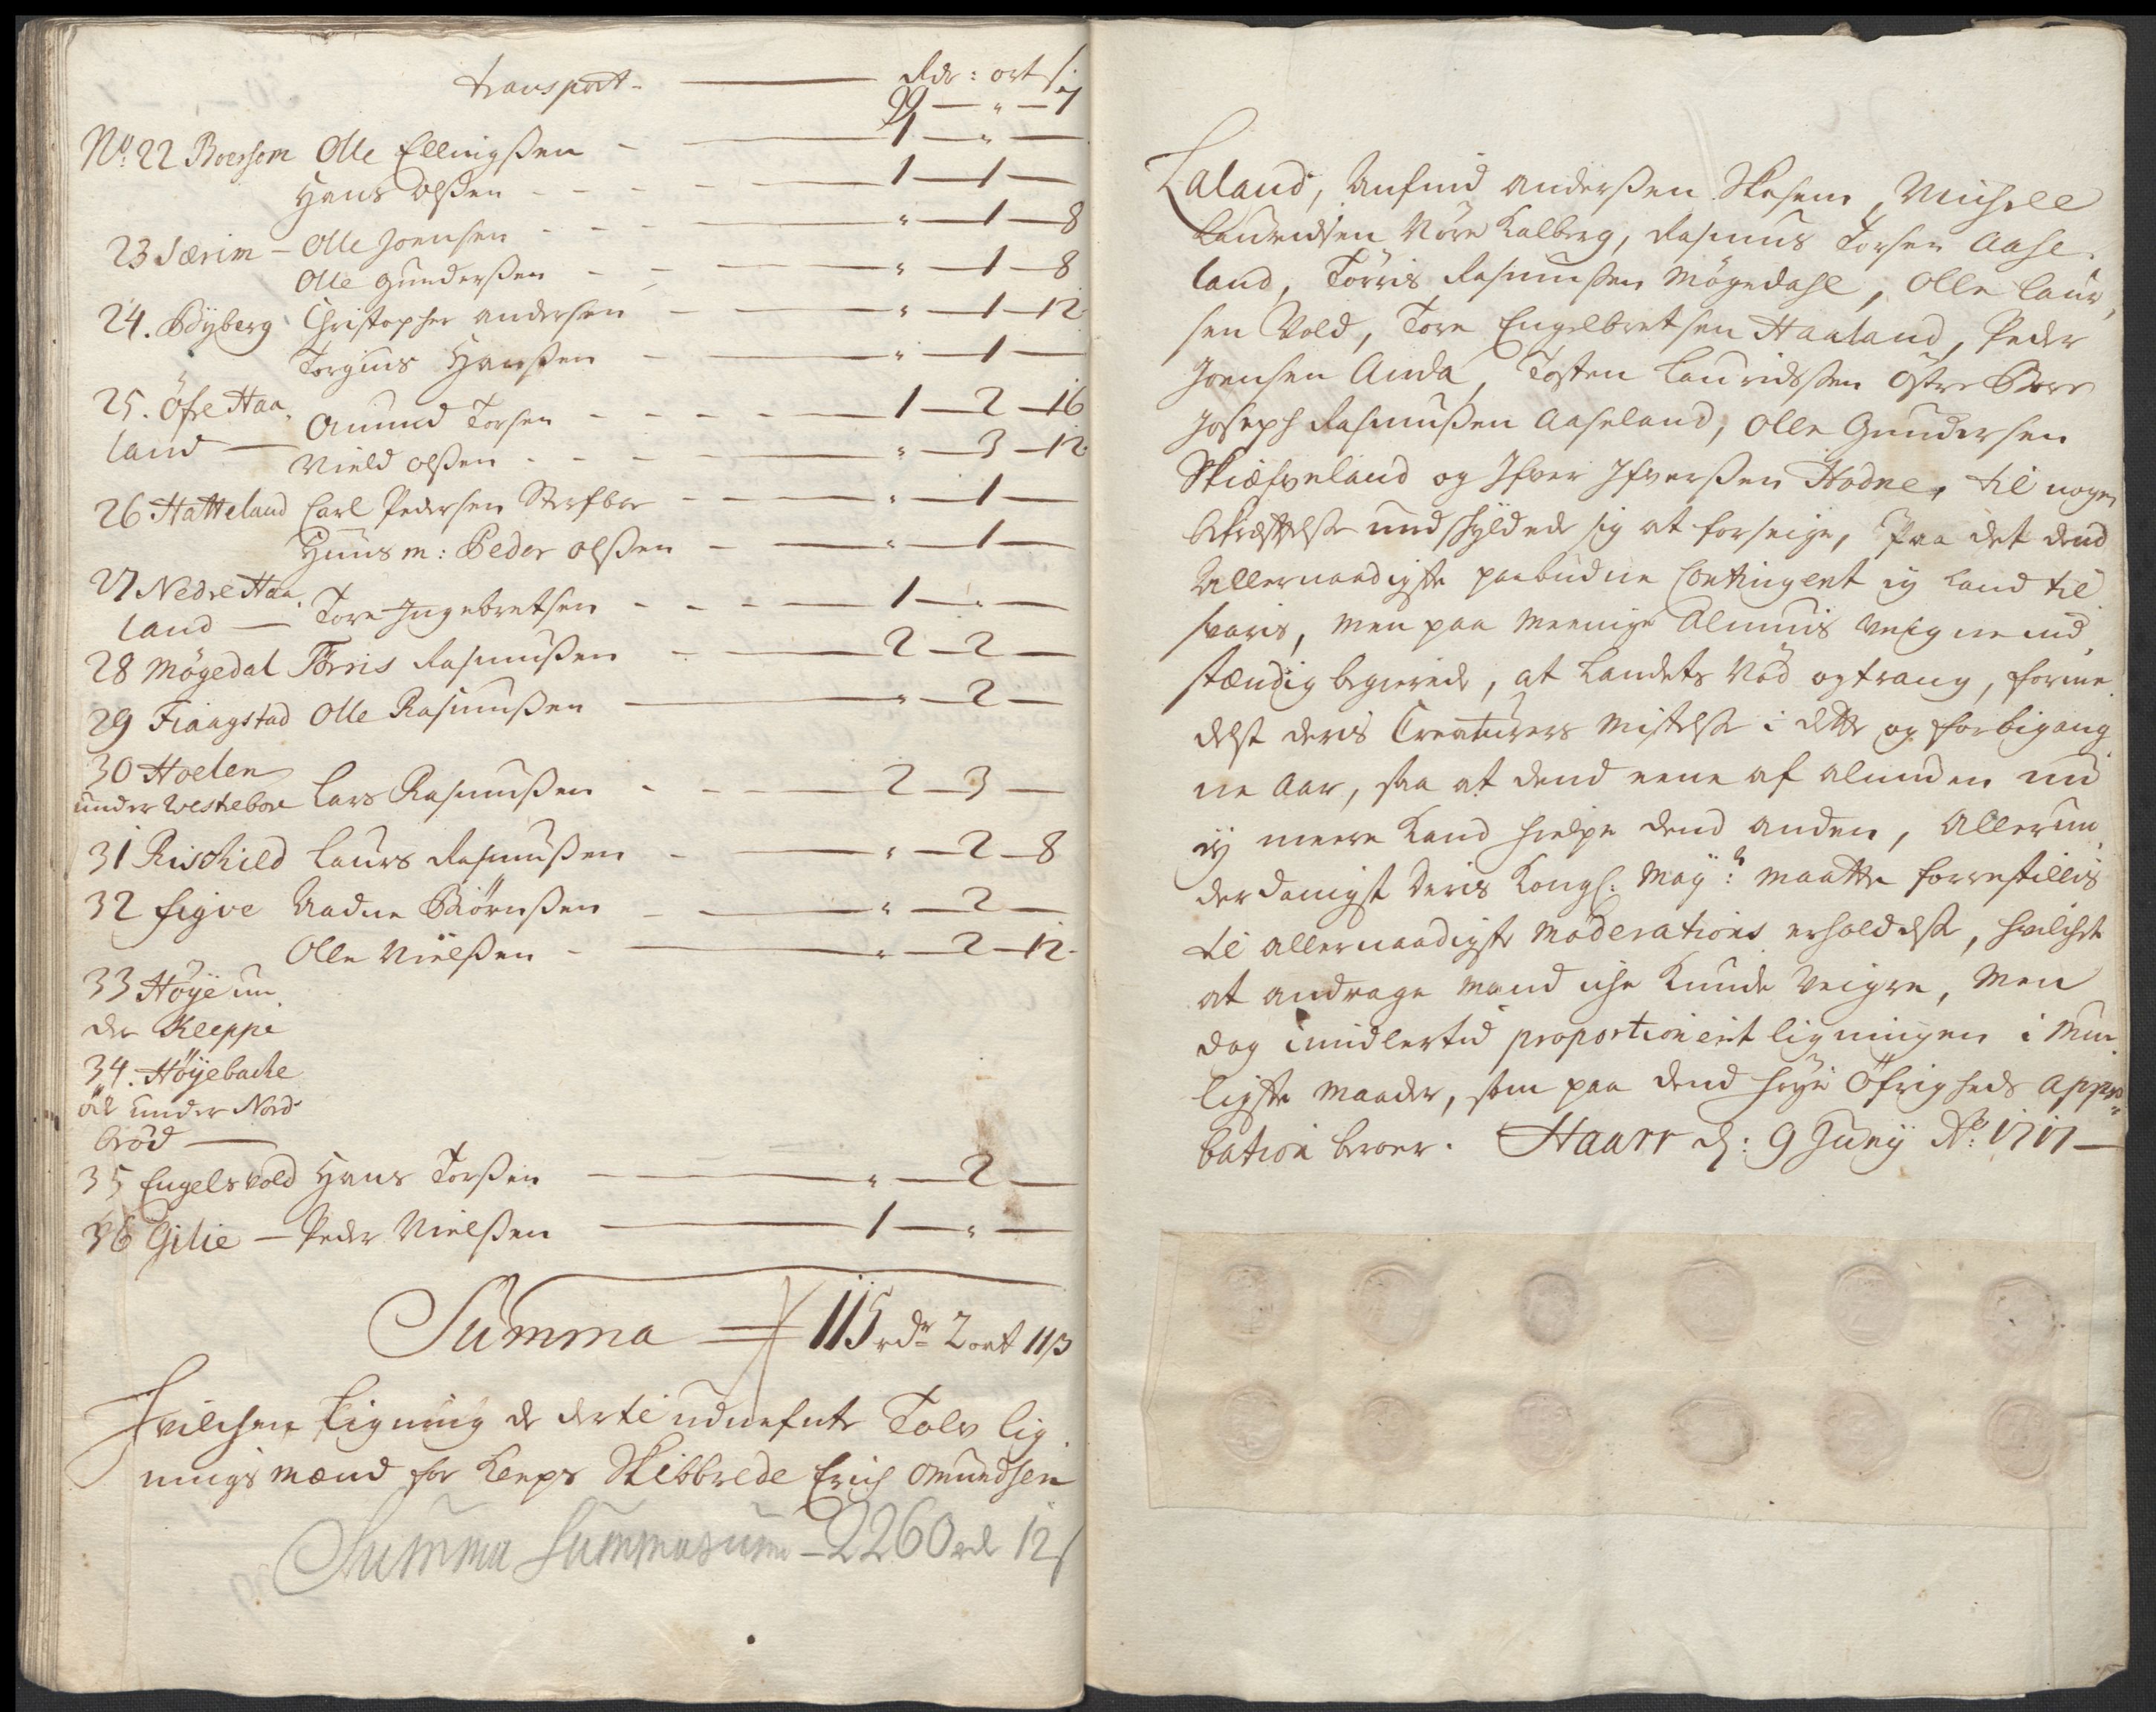 Transport. — Rdr: ort ß
99 — " — 7
No: 22 Boersom Olle Ellingßen - 1 — " —
Hans Olßen - - - 1 — 1 —
23 Særim - Olle Joensen - - - " — 1 — 8
Olle Gunderßen - - " — 1 — 8
24. Bÿberg Christopher Andersen - " — 1 — 12
Torgius Hanßen - " — 1 —
25. Öfre Haa,
land — Omund Torsen - - - 1 — 2 — 16
Nield Olßen - - - " — 3 — 12
26 Hatteland Carl Pedersen - - " — 1 —
Huusm: Peder Olßen - - " — 1 —
27 Nedre Haa,
land — Tore Ingebretsen - - - 1 — " —
28 Møgedal Tørris Rasmußen - 2 — 2 —
29 Fiaagstad Olle Rasmußen — " — 2 —
30 Hoelen
under Vestrebore Lars Rasmußen - - - 2 — 3 —
31 Rischild Laurs Rasmußen - " — 2 — 8
32 Figve Aadne Biørnßen - " — 2 —
Olle Nielßen - " — 2 — 12
33 Høÿe un,
der Kleppe
34. Høÿebache
öle under Nord-
brød —
35 Engelsvold Hans Torßen — " — 2 —
36 Gilie — Peder Nielßen — 1 — " —
Summa = 115 rdr 2 ort 11 ß
Hvilchen Ligning de dertil udnefnte Tolv Lig,
nings mænd for Kleps Skibbrede Erich Omundsen
Summa Summarum — 2260 rdr 12 ß
Laland, Anfind Anderßen Skasem, Michell
Lauridsen Nøre Kalberg, Rasmus Torsen Aase,
land, Tørris Rasmußen Møgedahl, Olle Laur,
sen Vold, Tore Engelbretsen Haaland, Peder
Joensen Anda, Tosten Lauridßen Østre Bore
Joseph Rasmußen Aaseland, Olle Gundersen
Skiæfveland og Ifver Ifverßen Hodne, til nogen
undskyldede sig at forseige, Paa det dend
Allernaadigste paabudne Contingent ey kand til
svaris, men paa Meenige Almuis Veigne ind,
stændig begierede, at Landets Nød og trang, forme,
delst deris Creaturers Mistelse i dette og forbigang,
ne Aar, saa at dend eene af Almuen nu
ey meere kand hielpe dend anden, Allerun,
derdanigst Deris Kongl: May:t maatte forrestillis
til allernaadigste Moderations erholdelse, hvilchet
at andrage mand iche kunde Veigre, Men
dog imidlertid proportionerit ligningen i Mue,
ligste Maader, som paa dend høye Øfrigheds Appro
bation beroer. Haarr d: 9 Junÿ Ao: 1717 —